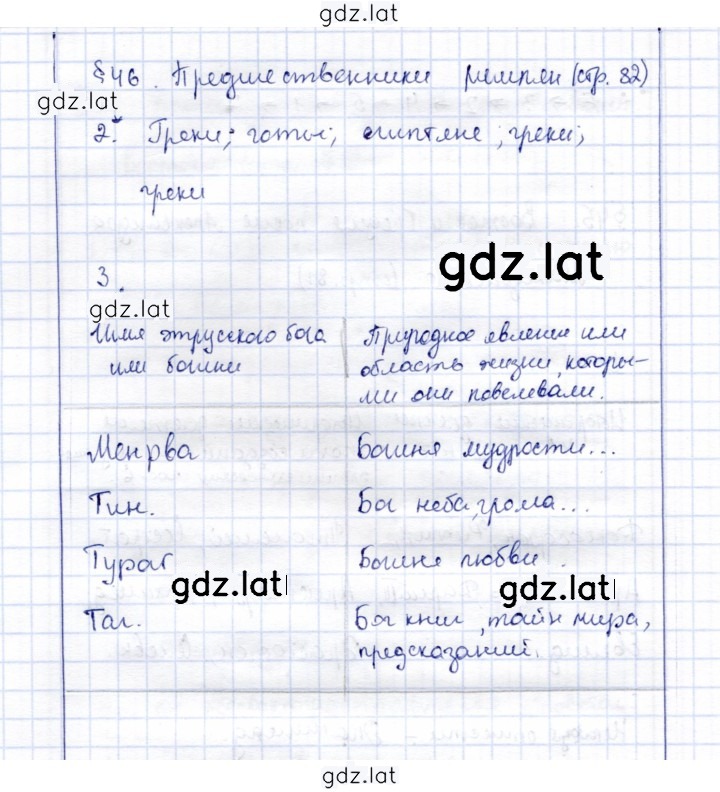 gdz.lat
§46. Предшественники римлян (стр. 82)
gdz.lat
2. Греки; готы; египтяне; греки;
греки
gdz.lat
3.
gdz.lat
Имя этрусского бога | Природное явление или
или богини | область жизни, которы-
ми они повелевали.
Менрва | Богиня мудрости...
Тин. | Бог неба, грома...
Туран | Богиня любви.
gdz.lat gdz.lat
Таг. | Бог книг, тайн мира,
предсказаний.
gdz.lat